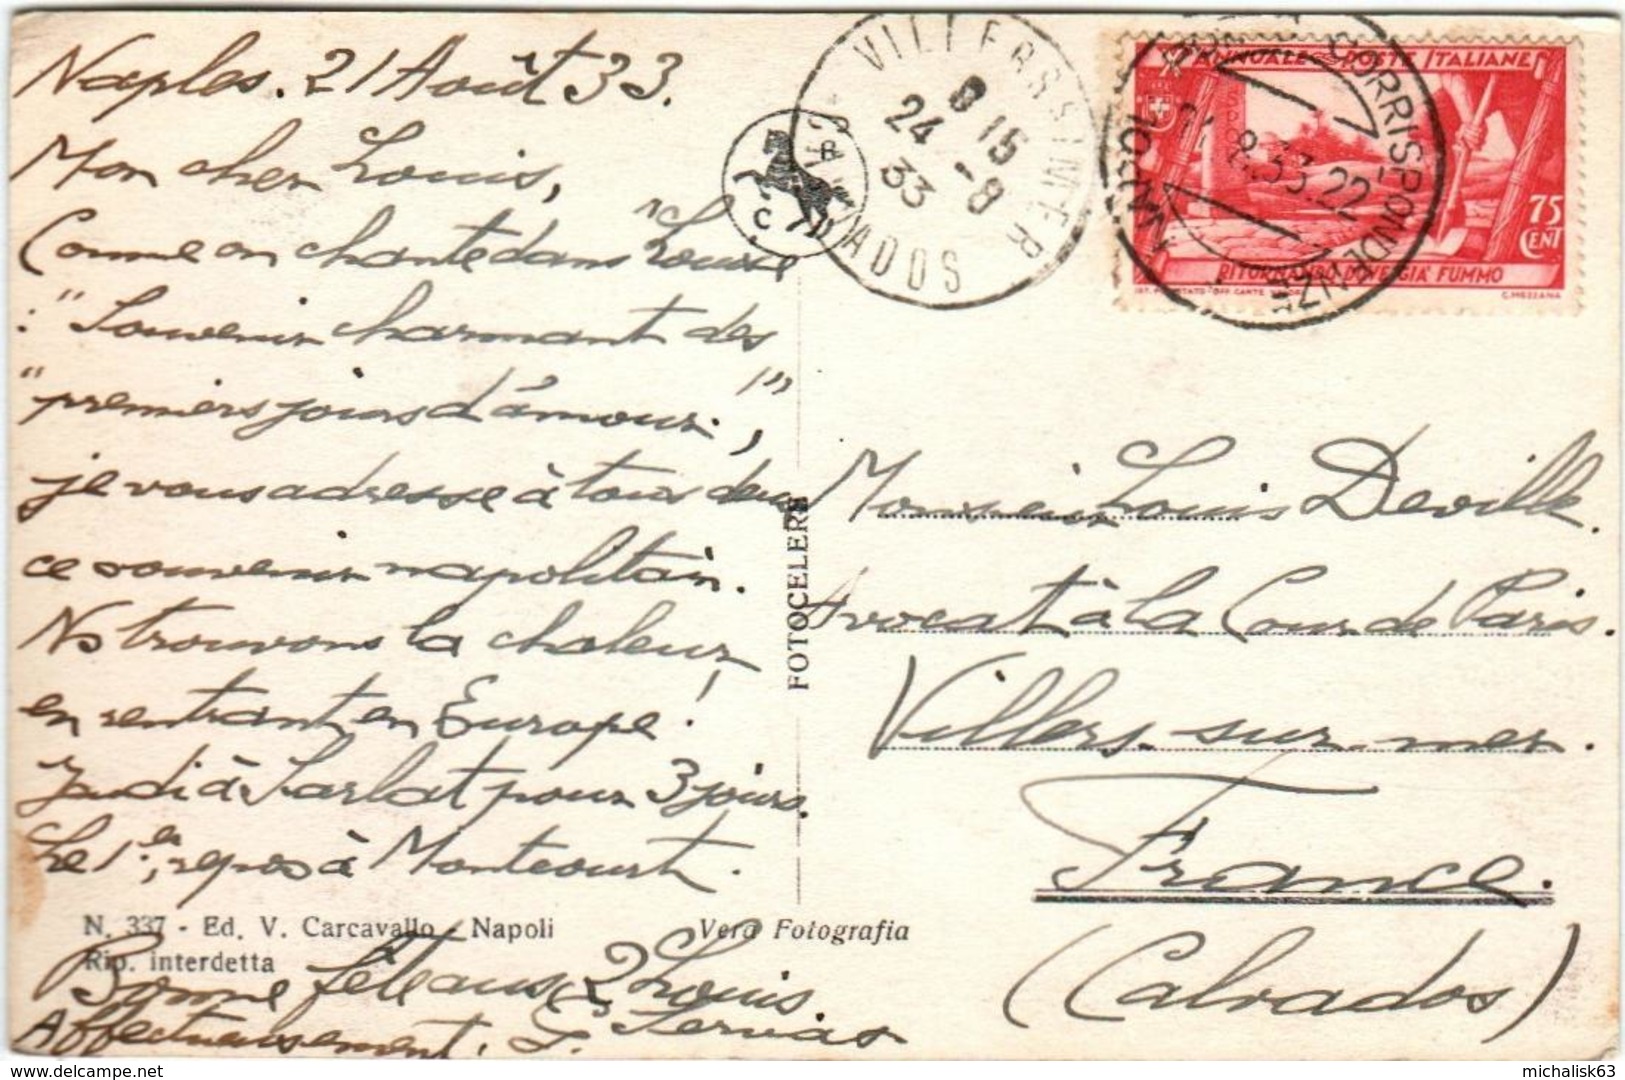 Naples. 21 Août 33.
Mon cher Louis,
Comme on chante dans "Louise
: "Souvenir charmant des
"premiers jours d'amour!",
je vous adresse à tous deux
ce souvenir napolitain.
Ns trouvons la chaleur
en rentrant en Europe!
Jeudi à Sarlat pour 3 jours.
Le 1er, repos à Montcourt.
Bonne fête aux 2 Louis
Affectueusement. L. Servias
N. 337 - Ed. V. Carcavallo - Napoli
Rip. interdetta
Vera Fotografia
FOTOCELERE
B
C
VILLERS S MER
8 15
24 -8
33
CALVADOS
CORRISPONDENZE
NAPOLI
21.8.33.22
ANNUALE POSTE ITALIANE
75
CENT
RITORNANDO DOVE GIA' FUMMO
C. MEZZANA
Monsieur Louis Deville.
Avocat à la Cour de Paris.
Villers-sur-mer.
France.
(Calvados)
michalisk63
delcampe.net